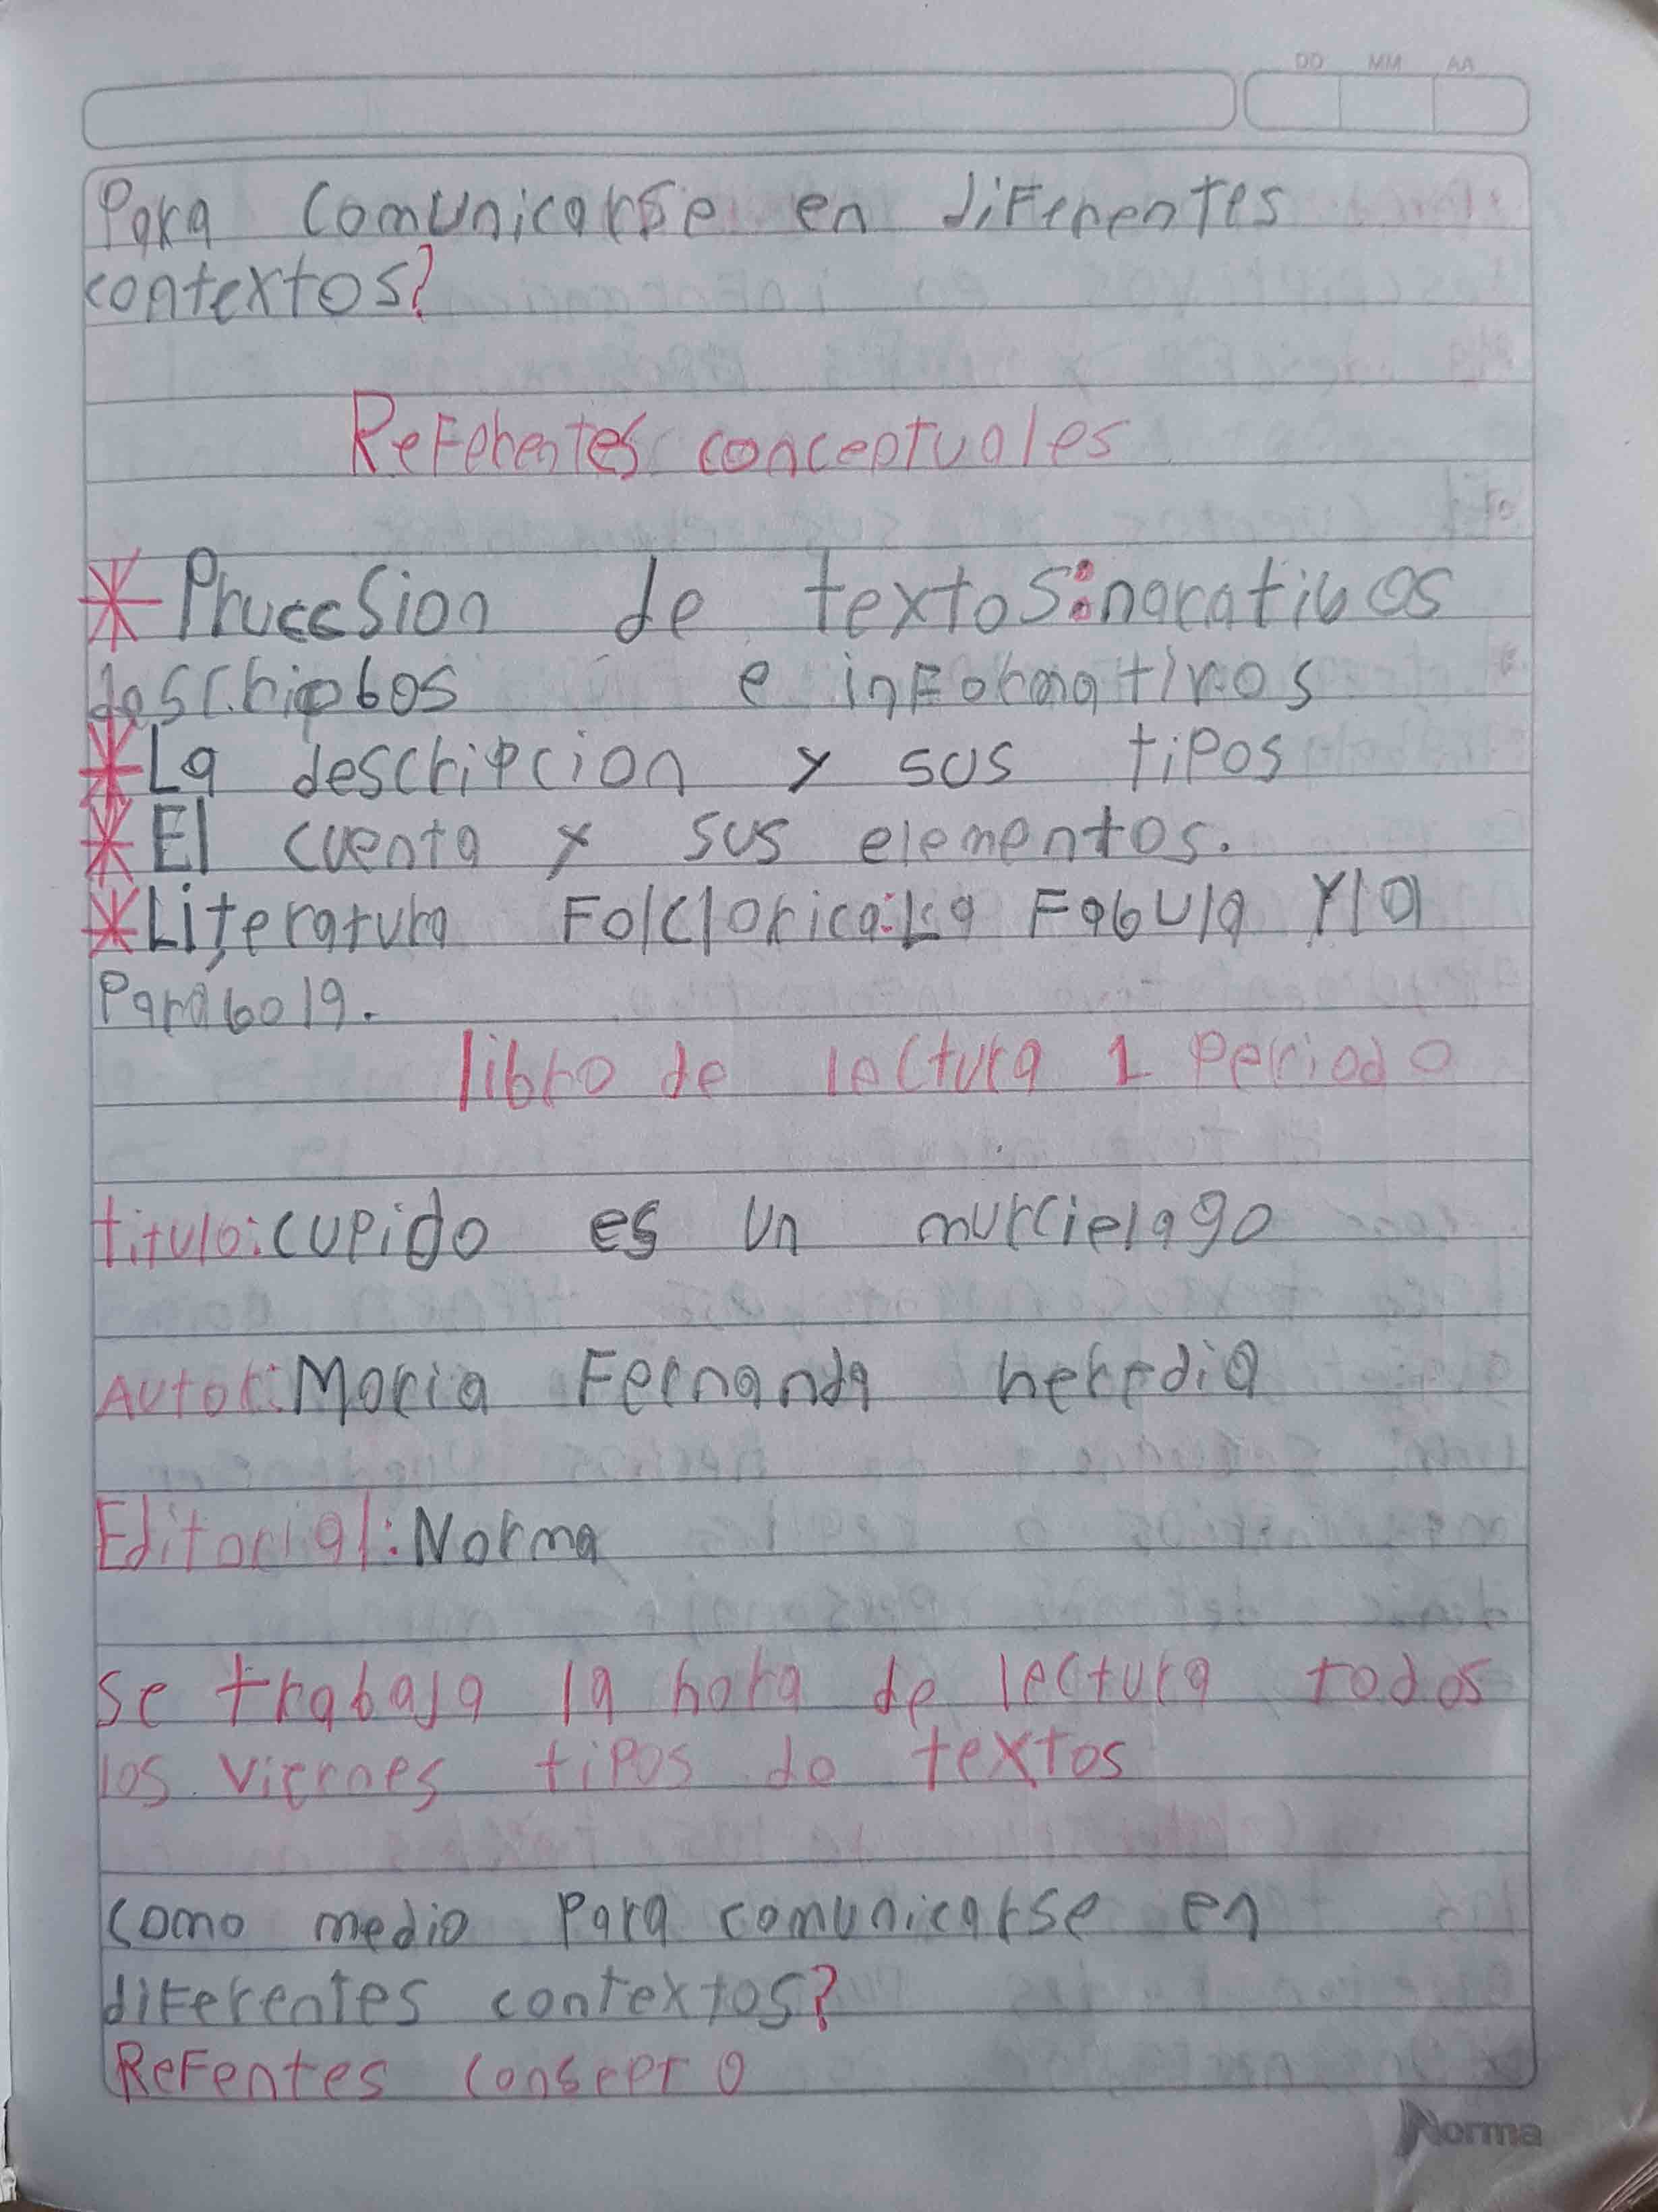 DD MM AA
Para comunicarse en diferentes
contextos?
Referentes conceptuales
* Pruccsion de textos: narativos
descripbos e informativos
* La descripcion y sus tipos
* El cuento y sus elementos.
* Literatura Folclorica: La Fabula Y la
Parábola.
libro de lectura 1 Periodo
titulo: cupido es un murcielago
Autor: Maria Fernanda heredia
Editorial: Norma
se trabaja la hora de lectura todos
los viernes tipos de textos
como medio Para comunicarse en
diferentes contextos?
Refentes consepto
Norma